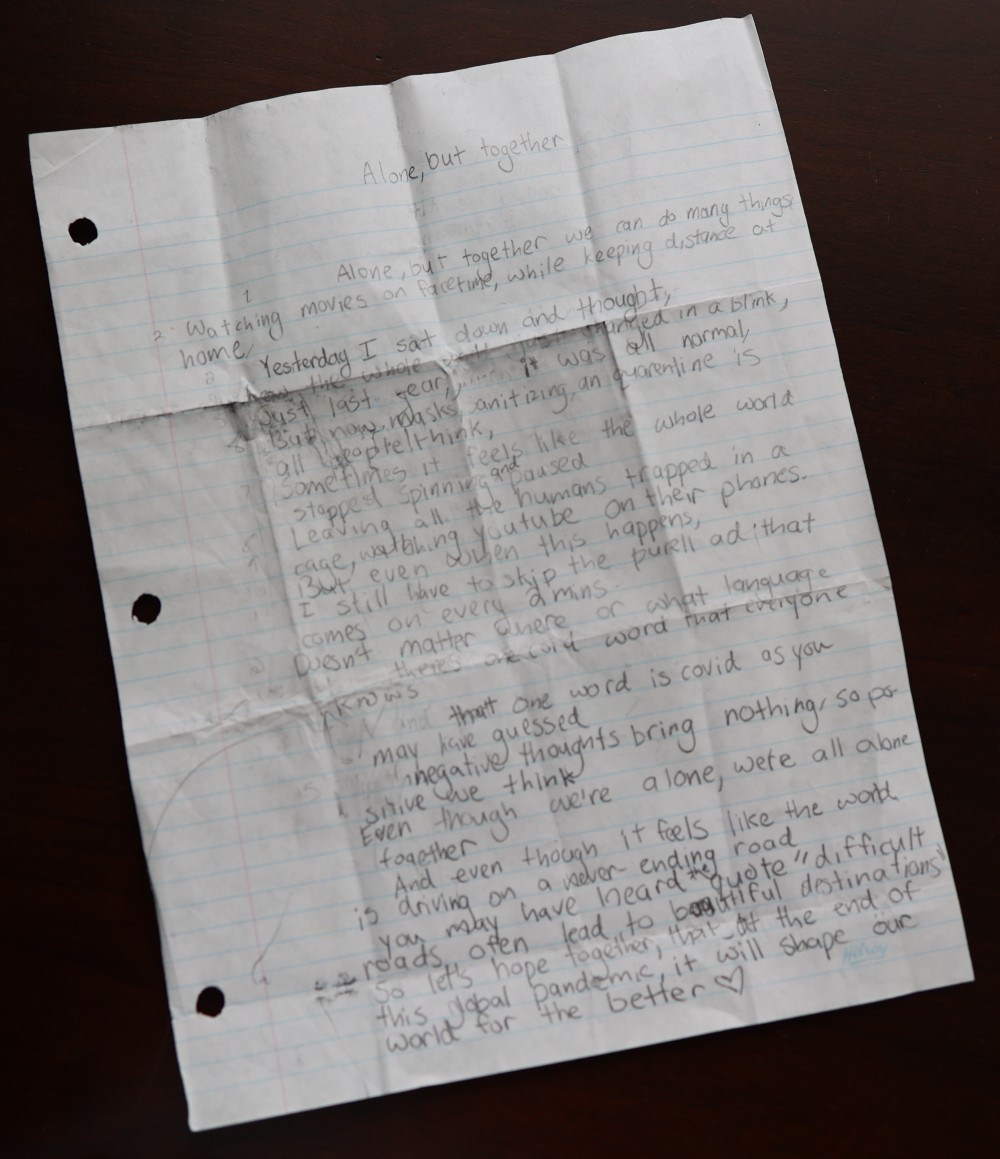 Alone, but together
Alone, but together we can do many things
1
2 Watching movies on facetime, while keeping distance at
home,
Yesterday I sat down and thought,
how the whole changed in a blink,
Just last year, it was all normal,
But now, masks sanitizing, an quarentine is
all people think,
Sometimes it feels like the whole world
stopped spinning and paused
Leaving all the humans trapped in a
cage, watching youtube on their phones.
But even when this happens,
I still have to skip the purell ad that
comes on every 2 mins.
Doesn't matter where or what language
there's one word that everyone
knows
and that one word is covid as you
may have guessed
negative thoughts bring nothing, so po-
sitive we think
Even though we're alone, we're all alone
together
And even though it feels like the world
is driving on a never ending road
you may have heard the quote "difficult
roads, often lead to beautiful destinations"
So let's hope together, that at the end of
this global pandemic, it will shape our
world for the better ♡